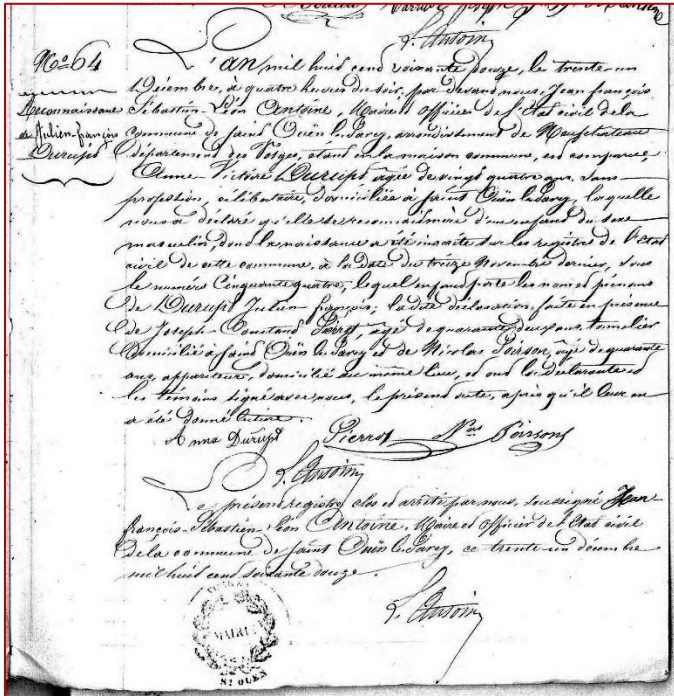 L. Antoine
No 64
Reconnaissance
de Julien-françois
Durupt
L'an mil huit cent soixante douze, le trente un
Décembre, à quatre heures du soir, par devant nous, Jean françois
Sébastien-Léon Antoine, Maire et officier de l'Etat civil de la
commune de saint Ouën les Parey, arrondissement de Neufchateau
département des Vosges, étant en la maison commune, est comparue
Anne-Victoire Durupt agée de vingt quatre ans, sans
profession, célibataire, domiciliée à saint Ouën les Parey, laquelle
nous a déclaré qu'elle se reconnait mère d'un enfant du sexe
masculin, dont la naissance a été inscrite sur les registres de l'Etat
civil de cette commune, à la date du treize Novembre dernier, sous
le numéro Cinquante quatre, lequel enfant porte les nom et prénoms
de Durupt Julien-françois; la dite déclaration, faite en présence
de Joseph-Constant Pierrot, âgé de quarante deux ans, tonnelier
domicilié à saint Ouën les Parey et de Nicolas Poirson, âgé de quarante
ans, appariteur, domicilié au même lieu, et ont la déclarante et
les témoins signé avec nous, le présent acte, après qu'il leur en
a été donné lecture.
Anna Durupt Pierrot Nas Poirson
L. Antoine
Le présent registre clos et arrêté par nous, soussigné Jean
françois-Sébastien-Léon Antoine, Maire et officier de l'Etat civil
de la commune de saint Ouën les Parey, ce trente un décembre
mil huit cent soixante douze.
L. Antoine
MAIRIE
ST OUEN